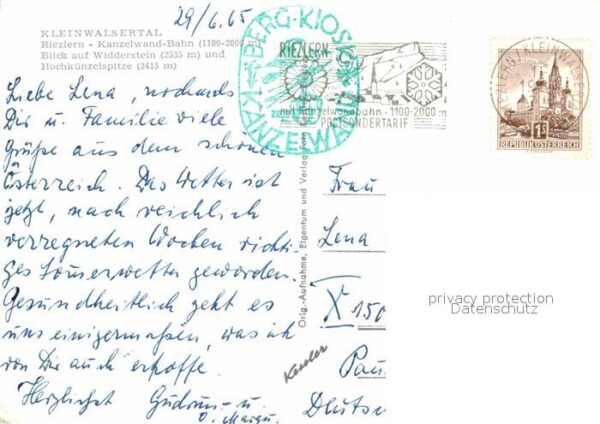 29/6.65
KLEINWALSERTAL
Riezlern - Kanzelwand-Bahn (1100-2000 m)
Blick auf Widderstein (2535 m) und
Hochkünzelspitze (2415 m)
BERG-KIOSK
KANZELWAND
RIEZLERN
mit Kanzelwandbahn - 1100-2000 m
POSTSONDERTARIF
RIEZLERN (KLEINWALSERTAL)
1S
REPUBLIK ÖSTERREICH
Liebe Lena, nochmals
Dir u. Familie viele
Grüße aus dem schönen
Österreich. Das Wetter ist
jetzt, nach reichlich
verregneten Wochen richti-
ges Sommerwetter geworden.
Gesundheitlich geht es
uns einigermaßen, was ich
von Dir auch erhoffe.
Herzlichst Gudrun u.
Orig.-Aufnahme, Eigentum und Verlag Foto
Frau
Lena
X 150
Pau
Deutsch
Kessler
privacy protection
Datenschutz